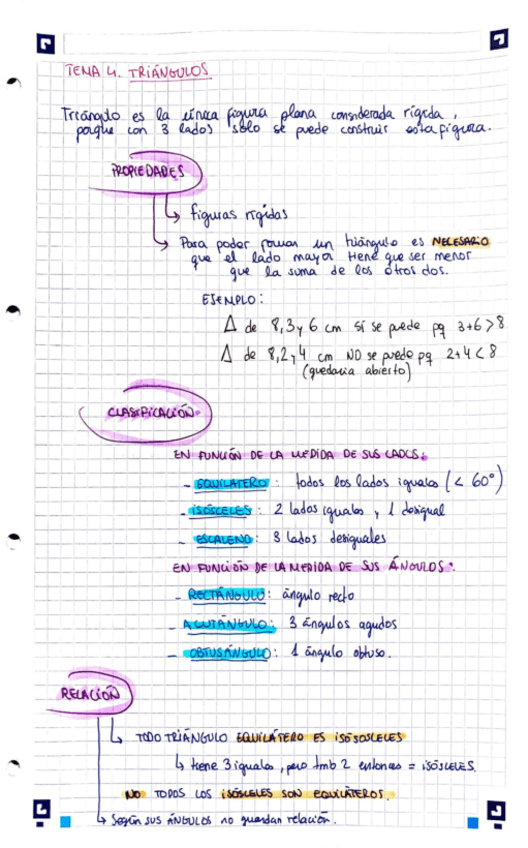 TEMA 4. TRIÁNGULOS
Triángulo es la única figura plana considerada rígida,
porque con 3 lados sólo se puede construir esta figura.
PROPIEDADES
↳ figuras rígidas
↳ Para poder formar un triángulo es NECESARIO
que el lado mayor tiene que ser menor
que la suma de los otros dos.
EJEMPLO:
Δ de 8,3 y 6 cm SÍ se puede pq 3+6>8
Δ de 8,2 y 4 cm NO se puede pq 2+4<8
(quedaría abierto)
CLASIFICACIÓN
EN FUNCIÓN DE LA MEDIDA DE SUS LADOS:
- EQUILATERO: todos los lados iguales (< 60°)
- ISÓSCELES: 2 lados iguales, 1 desigual
- ESCALENO: 3 lados desiguales
EN FUNCIÓN DE LA MEDIDA DE SUS ÁNGULOS:
- RECTÁNGULO: ángulo recto
- ACUTÁNGULO: 3 ángulos agudos
- OBTUSÁNGULO: 1 ángulo obtuso.
RELACIÓN
↳ TODO TRIÁNGULO EQUILÁTERO ES ISÓSOSCELES
↳ tiene 3 iguales, pero tmb 2 entonces = ISÓSCELES.
NO TODOS LOS ISÓSCELES SON EQUILÁTEROS.
↳ Según SUS ÁNGULOS no guardan relación.